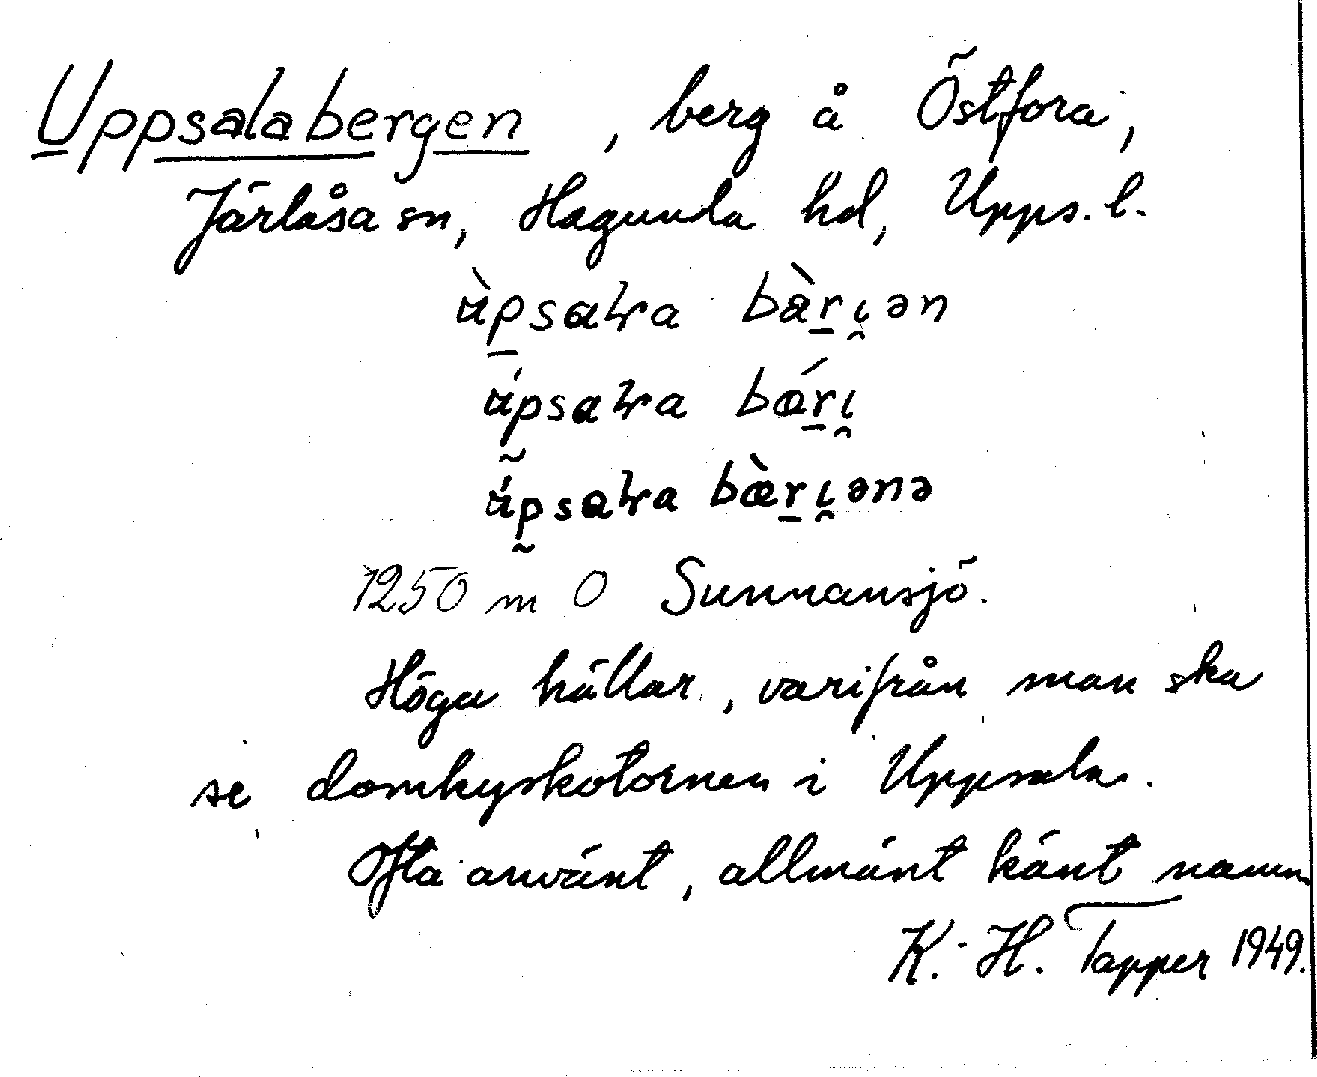 Uppsalabergen, berg å Östfora,
Järlåsa sn, Hagunda hd, Upps. l.
ùpsaɫra bæ̀rɩən
úpsaɫra bǽrɩ
úpsaɫra bæ̀rɩənə
1250 m O Sunnansjö.
Höga hällar, varifrån man ska
se domkyskotornen i Uppsala.
Ofta använt, allmänt känt namn
K.-H. Tapper 1949.